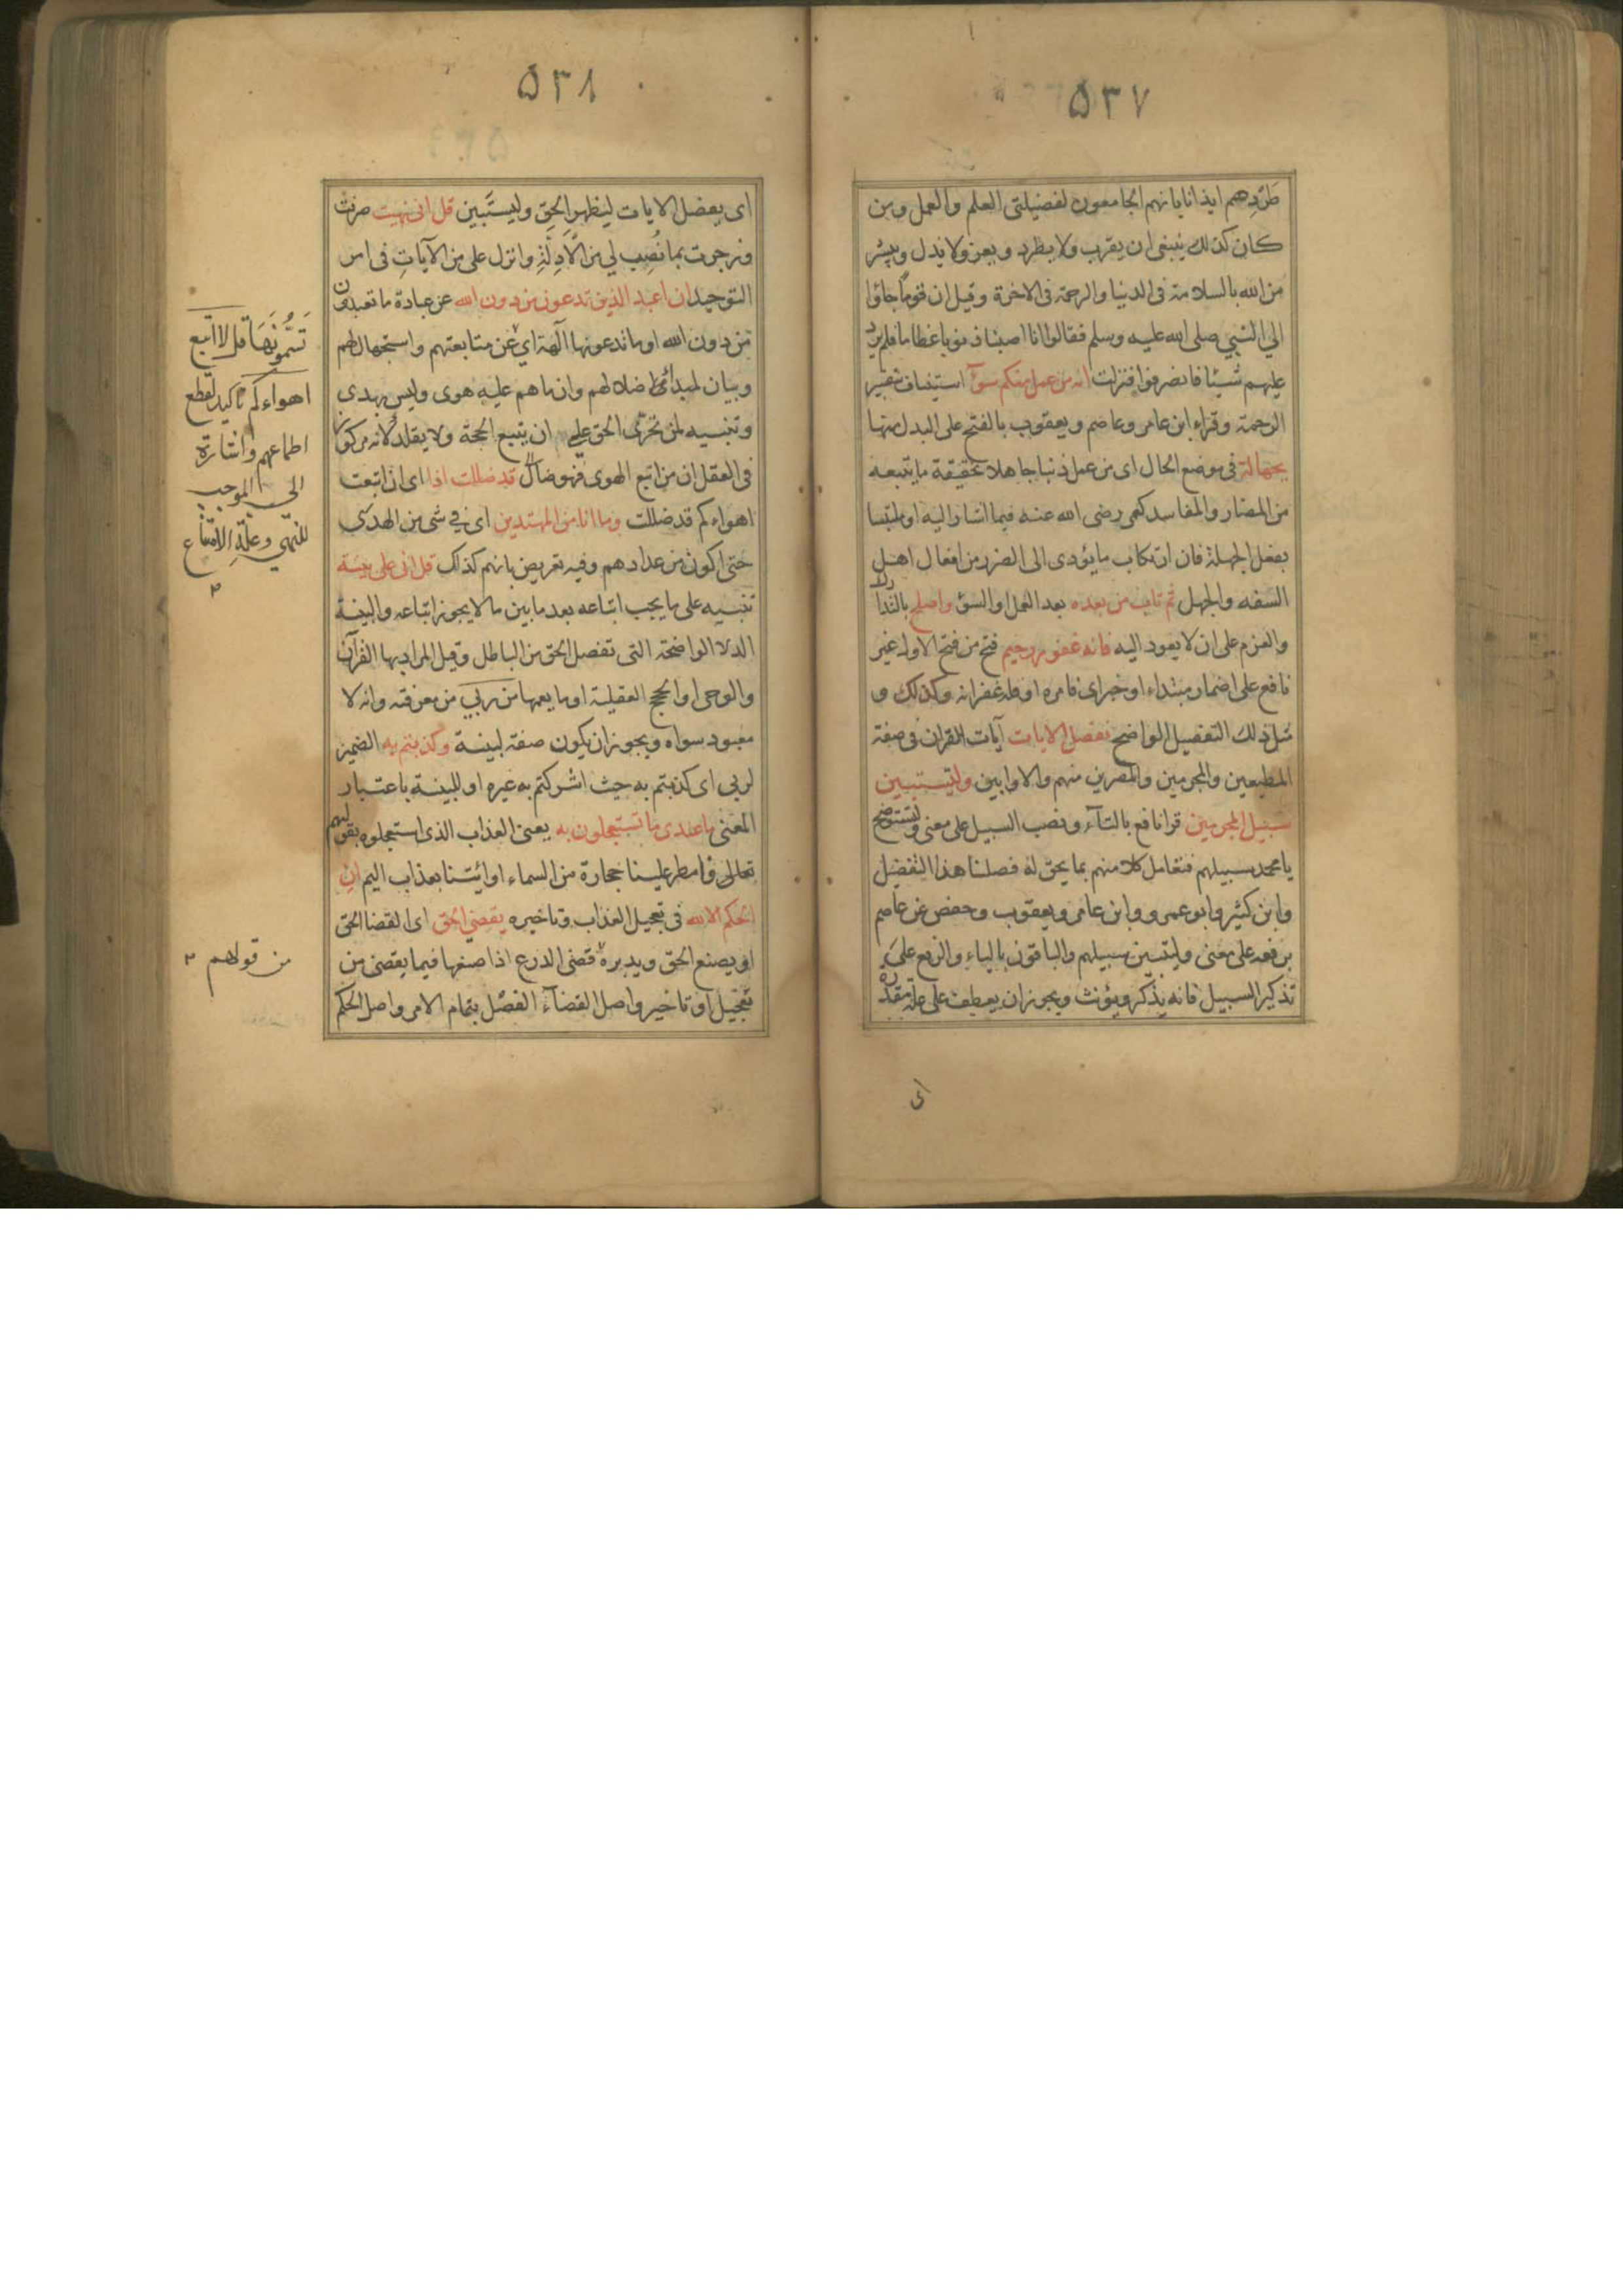 ٥٣٧
طردهم ايذانا بانهم الجامعون لفضيلتى العلم والعمل ومن
كان كذلك ينبغى ان يقرب ولا يطرد ويعز ولا يذل ويبشر
من الله بالسلامة فى الدنيا والرحمة فى الاخرة وقيل ان قوما جاؤا
الي النبي صلى الله عليه وسلم فقالوا انا اصبنا ذنوبا عظاما فلم يرد
عليهم شيئا فانصرفوا فنزلت انه من عمل منكم سوآ استيناف تفسير
الرحمة وقراء ابن عامر وعاصم ويعقوب بالفتح على البدل منها
بجهالة فى موضع الحال اى من عمل ذنبا جاهلا بحقيقة ما يتبعه
من المضار والمفاسد كعمر رضى الله عنه فيما اشار اليه او ملتبسا
بفعل الجهلة فان ارتكاب ما يؤدى الى الضرر من افعال اهل
السفه والجهل ثم تاب من بعده بعد العمل او السؤ واصلح بالتدارك
والعزم على ان لا يعود اليه فانه غفور رحيم فتح من فتح الاول غير
نافع على اضمار مبتداء او خبر اى فامره او فله غفرانه وكذلك و
مثل ذلك التفصيل الواضح نفصل الايات آيات القران فى صفة
المطيعين والمجرمين والمصرين منهم والاوابين ولتستبين
سبيل المجرمين قرا نافع بالتاء ونصب السبيل على معنى ولتستوضح
يا محمد سبيلهم فتعامل كلا منهم بما يحق له فصلنا هذا التفصيل
وابن كثير وابو عمرو وابن عامر ويعقوب وحفص عن عاصم
برفعه على معنى وليتبين سبيلهم والباقون بالياء والرفع على
تذكير السبيل فانه يذكر ويؤنث ويجوز ان يعطف على علة مقدرة
اى
٥٣٨
اى نفصل الايات ليظهر الحق وليستبين قل انى نهيت صرفت
وزجرت بما نصب لي من الادلة وانزل على من الآيات فى امر
التوحيد ان اعبد الذين تدعون من دون الله عن عبادة ما تعبدون
من دون الله او ما تدعونها آلهة اي عن متابعتهم واستجهال لهم
وبيان لمبدائ ضلالهم وان ما هم عليه هوى وليس بهدى
وتنبيه لمن تحرى الحق على ان يتبع الحجة ولا يقلد لانه مركوز
فى العقل ان من اتبع الهوى فهو ضال قد ضللت اذا اى ان اتبعت
اهواءكم قد ضللت وما انا من المهتدين اى في شى من الهدى
حتى اكون من عدادهم وفيه تعريض بانهم كذلك قل انى على بينة
تنبيه على ما يجب اتباعه بعد ما بين ما لا يجوز اتباعه والبينة
الدلالة الواضحة التى تفصل الحق من الباطل وقيل المراد بها القرآن
والوحى او الحجج العقلية او ما يعمها من ربي من معرفته وانه لا
معبود سواه ويجوز ان يكون صفة لبينة وكذبتم به الضمير
لربى اى كذبتم به حيث اشركتم به غيره او للبينة باعتبار
المعنى ما عندى ما تستعجلون به يعنى العذاب الذى استعجلوه بقولهم
تعالى فامطر علينا حجارة من السماء او ائتنا بعذاب اليم ان
الحكم الا لله فى تعجيل العذاب وتاخيره يقضي الحق اى القضا الحق
او يصنع الحق ويدبره قضى الدرع اذا صنعها فيما يقضى من
تعجيل او تاخير واصل القضآء الفصل بتمام الامر واصل الحكم
تسمونها قل لا اتبع
اهواءكم تاكيد لقطع
اطماعهم واشارة
الى الموجب
للنهي وعلة الامتناع
من قولهم